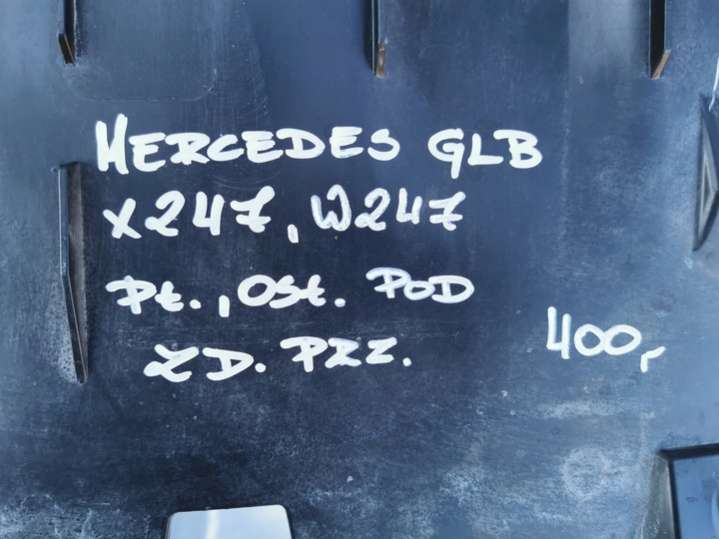 MERCEDES GLB
X247, W247
Pł., OSŁ. POD
ZD. PRZ.
400,-